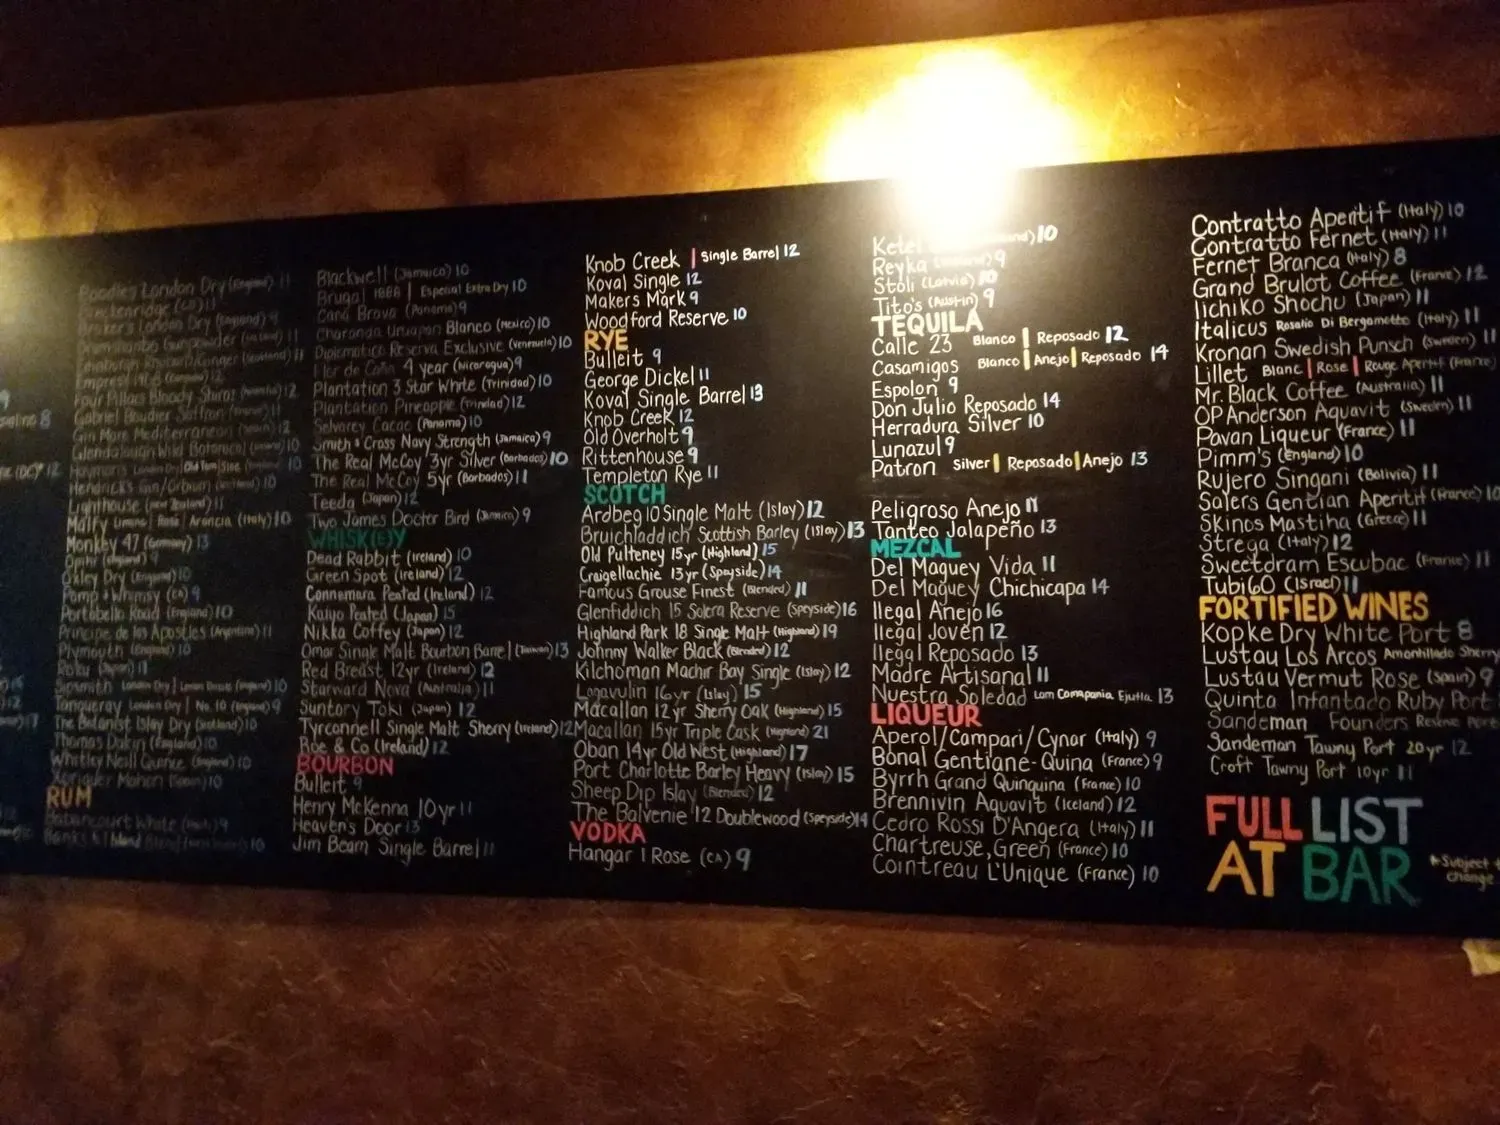 8
12
Boodles London Dry (England) 11
Breckenridge (CO) 11
Broker's London Dry (England) 9
Drumshanbo Gunpowder (Ireland) 11
Edinburgh Rhubarb/Ginger (Scotland) 11
Empress 1908 12
Four Pillars Bloody Shiraz (Australia) 12
Gabriel Boudier Saffron (France) 11
Gin Mare Mediterranean (Spain) 12
Glendalough Wild Botanical (Ireland) 10
Hayman's London Dry | Old Tom | Sloe (England) 10
Hendrick's Gin/Orbium (Scotland) 10
Lighthouse (New Zealand) 11
Malfy Limone | Rosa | Arancia (Italy) 10
Monkey 47 (Germany) 13
Opihr (England) 9
Oxley Dry (England) 10
Pomp + Whimsy (CA) 9
Portobello Road (England) 10
Principe de los Apostles (Argentina) 11
Plymouth (England) 10
Roku (Japan) 11
Sipsmith London Dry | Lemon Drizzle (England) 10
Tanqueray London Dry | No. 10 (England) 9
The Botanist Islay Dry (Scotland) 10
Thomas Dakin (England) 10
Whitley Neill Quince (England) 10
Xoriguer Mahon (Spain) 10
RUM
Barbancourt White (Haiti) 9
Banks 5 Island Blend 10
Blackwell (Jamaica) 10
Brugal 1888 | Especial Extra Dry 10
Cana Brava (Panama) 9
Charanda Uruapan Blanco (Mexico) 10
Diplomatico Reserva Exclusive (Venezuela) 10
Flor de Caña 4 year (Nicaragua) 9
Plantation 3 Star White (Trinidad) 10
Plantation Pineapple (Trinidad) 12
Selvarey Cacao (Panama) 10
Smith & Cross Navy Strength (Jamaica) 9
The Real McCoy 3yr Silver (Barbados) 10
The Real McCoy 5yr (Barbados) 11
Teeda (Japan) 12
Two James Doctor Bird (Jamaica) 9
WHISK(E)Y
Dead Rabbit (Ireland) 10
Green Spot (Ireland) 12
Connemara Peated (Ireland) 12
Kaiyo Peated (Japan) 15
Nikka Coffey (Japan) 12
Omar Single Malt Bourbon Barrel (Taiwan) 13
Red Breast 12yr (Ireland) 12
Starward Nova (Australia) 11
Suntory Toki (Japan) 12
Tyrconnell Single Malt Sherry (Ireland) 12
Roe & Co (Ireland) 12
BOURBON
Bulleit 9
Henry McKenna 10yr 11
Heaven's Door 13
Jim Beam Single Barrel 11
Knob Creek | Single Barrel 12
Koval Single 12
Makers Mark 9
Woodford Reserve 10
RYE
Bulleit 9
George Dickel 11
Koval Single Barrel 13
Knob Creek 12
Old Overholt 9
Rittenhouse 9
Templeton Rye 11
SCOTCH
Ardbeg 10 Single Malt (Islay) 12
Bruichladdich Scottish Barley (Islay) 13
Old Pulteney 15yr (Highland) 15
Craigellachie 13yr (Speyside) 14
Famous Grouse Finest (Blended) 11
Glenfiddich 15 Solera Reserve (Speyside) 16
Highland Park 18 Single Malt (Highland) 19
Johnny Walker Black (Blended) 12
Kilchoman Machir Bay Single (Islay) 12
Lagavulin 16yr (Islay) 15
Macallan 12yr Sherry Oak (Highland) 15
Macallan 15yr Triple Cask (Highland) 21
Oban 14yr Old West (Highland) 17
Port Charlotte Barley Heavy (Islay) 15
Sheep Dip Islay (Blended) 12
The Balvenie 12 Doublewood (Speyside) 14
VODKA
Hangar 1 Rose (CA) 9
Ketel 10
Reyka 9
Stoli (Latvia) 10
Tito's (Austin) 9
TEQUILA
Calle 23 Blanco | Reposado 12
Casamigos Blanco | Anejo | Reposado 14
Espolon 9
Don Julio Reposado 14
Herradura Silver 10
Lunazul 9
Patron Silver | Reposado | Anejo 13
Peligroso Anejo 11
Tanteo Jalapeño 13
MEZCAL
Del Maguey Vida 11
Del Maguey Chichicapa 14
Ilegal Anejo 16
Ilegal Joven 12
Ilegal Reposado 13
Madre Artisanal 11
Nuestra Soledad Lam Compania Ejutla 13
LIQUEUR
Aperol/Campari/Cynar (Italy) 9
Bonal Gentiane-Quina (France) 9
Byrrh Grand Quinquina (France) 10
Brennivin Aquavit (Iceland) 12
Cedro Rossi D'Angera (Italy) 11
Chartreuse, Green (France) 10
Cointreau L'Unique (France) 10
Contratto Aperitif (Italy) 10
Contratto Fernet (Italy) 11
Fernet Branca (Italy) 8
Grand Brulot Coffee (France) 12
Iichiko Shochu (Japan) 11
Italicus Rosolio Di Bergamotto (Italy) 11
Kronan Swedish Punsch (Sweden) 11
Lillet Blanc | Rose | Rouge Aperitif (France)
Mr. Black Coffee (Australia) 11
OP Anderson Aquavit (Sweden) 11
Pavan Liqueur (France) 11
Pimm's (England) 10
Rujero Singani (Bolivia) 11
Salers Gentian Aperitif (France) 10
Skinos Mastiha (Greece) 11
Strega (Italy) 12
Sweetdram Escubac (France) 11
Tubi60 (Israel) 11
FORTIFIED WINES
Kopke Dry White Port 8
Lustau Los Arcos Amontillado Sherry
Lustau Vermut Rose (Spain) 9
Quinta Infantado Ruby Port
Sandeman Founders Reserve Port
Sandeman Tawny Port 20yr 12
Croft Tawny Port 10yr 11
FULL LIST
AT BAR
*Subject
change